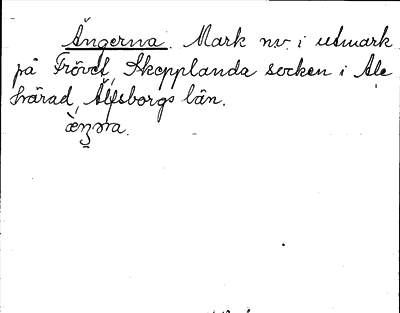 Ängerna. Mark nv. i utmark
på Trövet, Skepplanda socken i Ale
härad, Älfsborgs län.